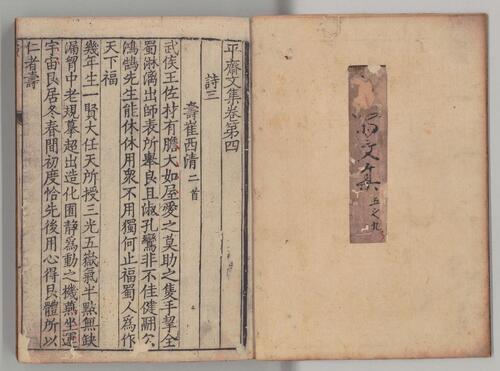 平齋文集卷第四
詩三
壽崔西清二首
武侯王佐材有膽大如屋愛之莫助之隻手挈全
蜀淋漓出師表所舉良且淑孔鸞非不佳健翮公
鴻鵠先生能休休用衆不用獨何止福蜀人爲作
天下福
幾年生一賢大任天所授三光五嶽氣半點無缺
漏胷中老規摹超出造化囿靜爲動之機燕坐運
宇宙良居冬春間初度恰先後用心得良體所以
仁者壽
文集 五之九